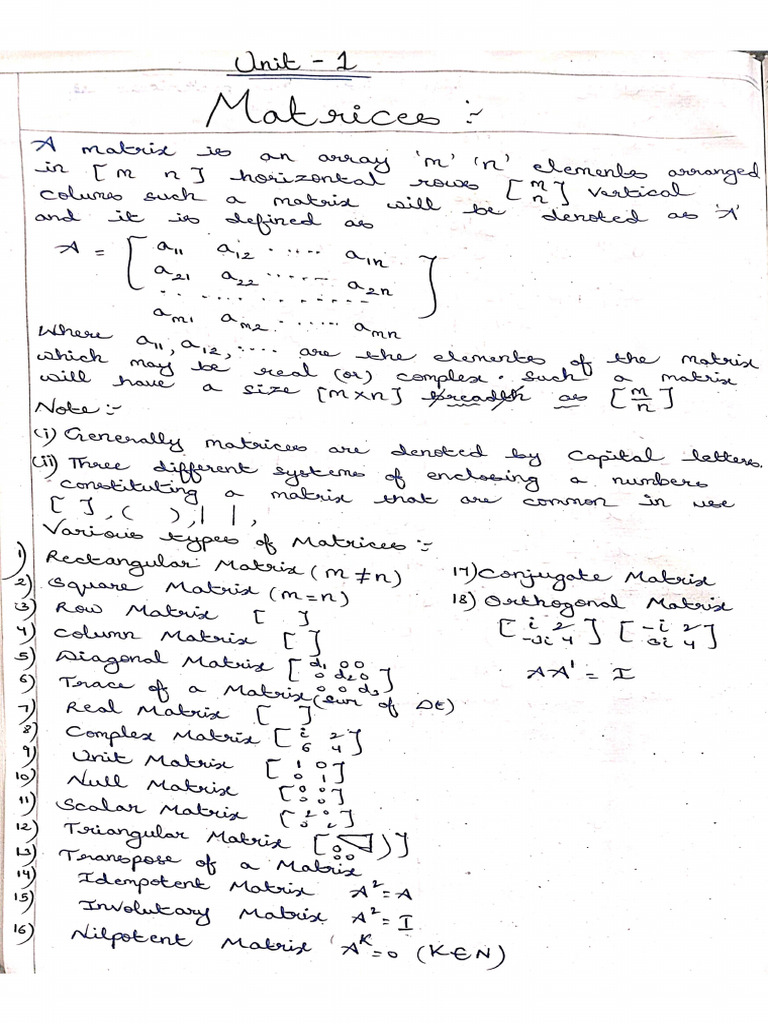 Unit - 1
Matrices :-
A matrix is an array 'm' 'n' elements arranged
in [m n] horizontal rows [m n] vertical
colums such a matrix will be denoted as 'A'
and it is defined as
A = [ a11 a12 ..... a1n
a21 a22 ....... a2n
. . . . . . . . . . . .
am1 am2 ...... amn ]
Where a11, a12, .... are the elements of the matrix
which may be real (or) complex. Such a matrix
will have a size [m×n] breadth as [m/n]
Note :-
(i) Generally matrices are denoted by Capital letters.
(ii) Three different systems of enclosing a numbers
constituting a matrix that are common in use
[ ], ( ), | |,
Various types of Matrices :-
1) Rectangular Matrix (m ≠ n)
2) Square Matrix (m = n)
(3) Row Matrix [ ]
4) Column Matrix [ ]
5) Diagonal Matrix [ d1 0 0
0 d2 0
0 0 d3 ]
6) Trace of a Matrix (sum of DE)
7) Real Matrix [ ]
8) Complex Matrix [ i 2
6 4 ]
9) Unit Matrix [ 1 0
0 1 ]
10) Null Matrix [ 0 0
0 0 ]
11) Scalar Matrix [ 2 0
0 2 ]
12) Triangular Matrix [ 0
0 0 ]
13) Transpose of a Matrix
14) Idempotent Matrix A² = A
15) Involutary Matrix A² = I
16) Nilpotent Matrix A^K = 0 (K ∈ N)
17) Conjugate Matrix
18) Orthogonal Matrix
[ i 2
-3i 4 ] [ -i 2
3i 4 ]
AA' = I